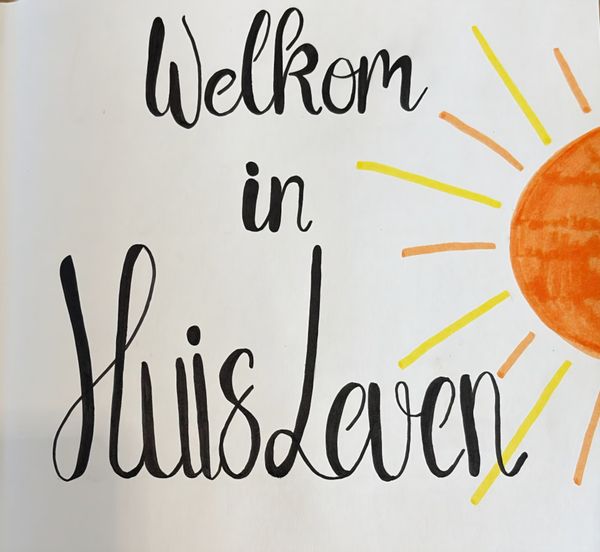 Welkom
in
HuisLeven